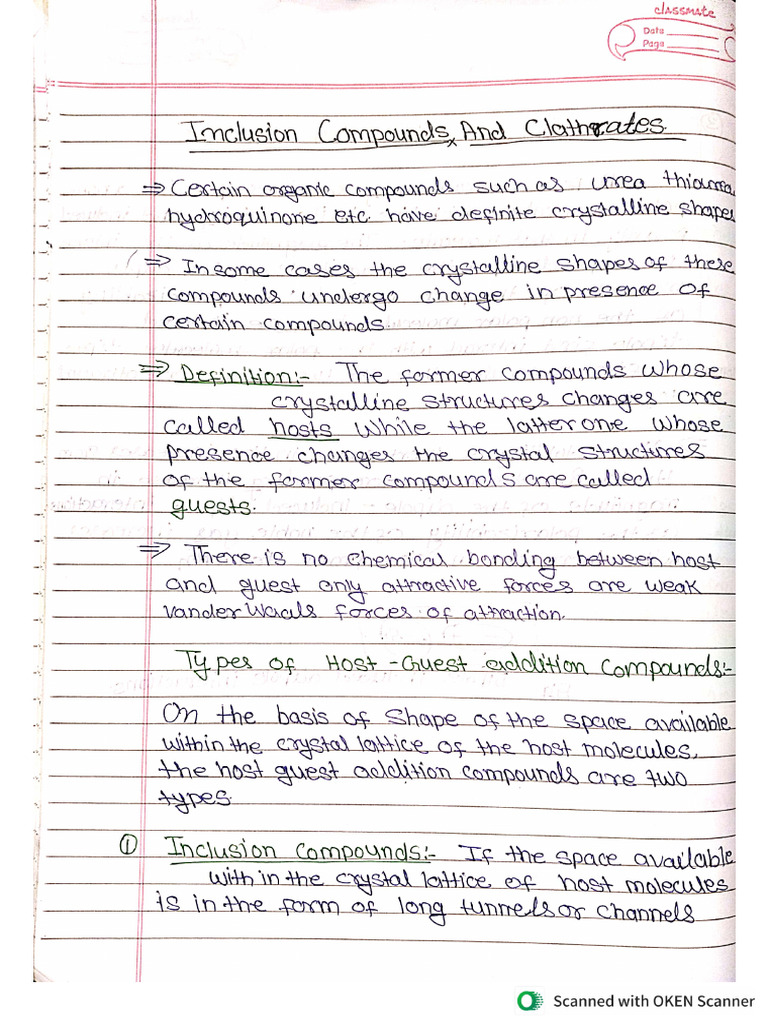 classmate
Date
Page
Inclusion Compounds, And Clathrates.
⇒ Certain organic compounds such as urea thiourea
hydroquinone etc have definite crystalline shapes
⇒ In some cases the crystalline shapes of these
compounds undergo change in presence of
certain compounds
⇒ Definition:- The former compounds whose
crystalline structures changes are
called hosts while the latter one whose
presence changes the crystal structures
of the former compounds are called
guests.
⇒ There is no chemical bonding between host
and guest only attractive forces are weak
vander Waals forces of attraction.
Types of Host-Guest addition compounds:-
On the basis of shape of the space available
within the crystal lattice of the host molecules,
the host guest addition compounds are two
types
① Inclusion compounds:- If the space available
with in the crystal lattice of host molecules
is in the form of long tunnels or channels
Scanned with OKEN Scanner